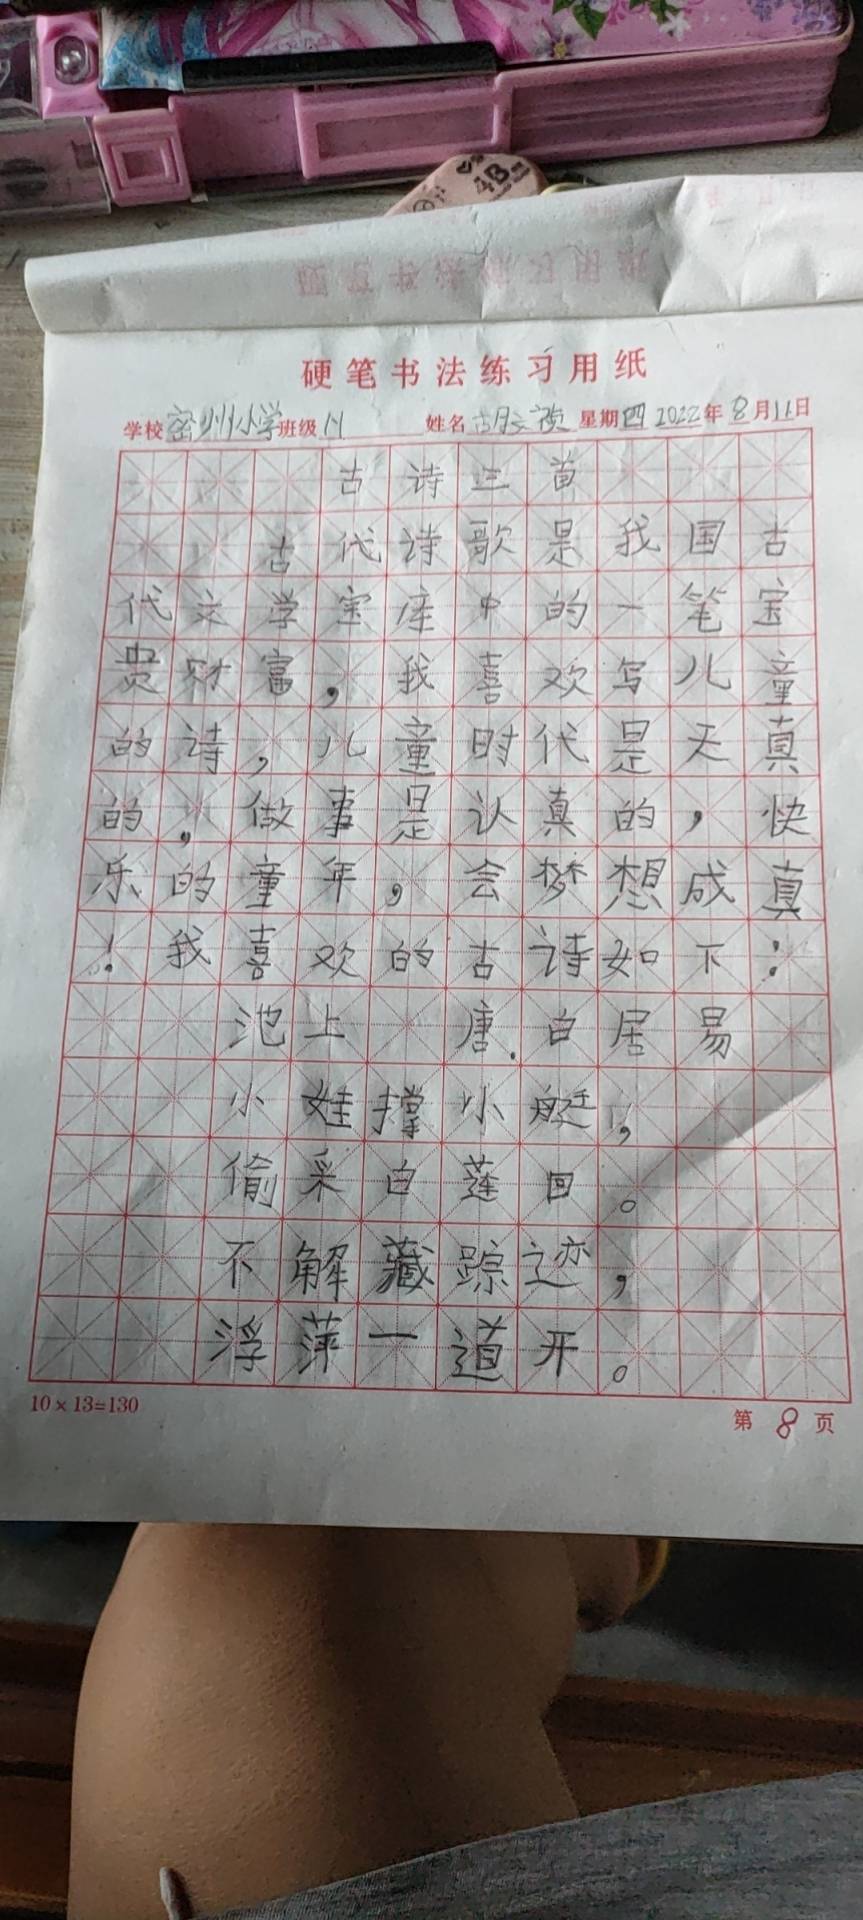 4B
硬笔书法练习用纸
学校 密州小学 班级 姓名 胡 星期四 2022年8月11日
古诗三首
古代诗歌是我国古
代文学宝库中的一笔宝
贵财富，我喜欢写儿童
的诗，儿童时代是天真
的，做事是认真的，快
乐的童年，会梦想成真
！我喜欢的古诗如下：
池上 唐.白居易
小娃撑小艇，
偷采白莲回。
不解藏踪迹，
浮萍一道开。
10×13=130
第 8 页